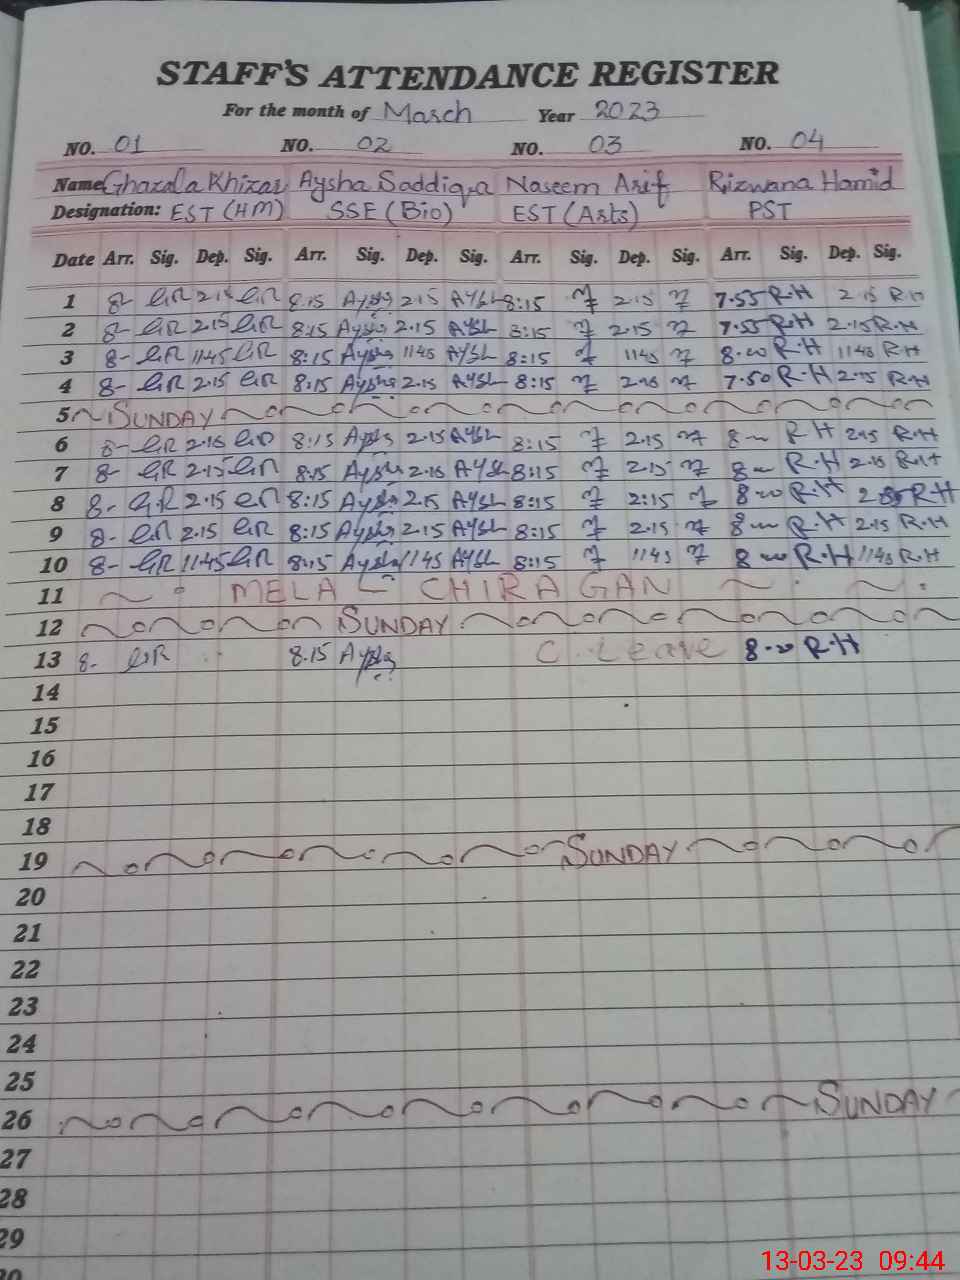 STAFF'S ATTENDANCE REGISTER
For the month of March Year 2023
NO. 01 NO. 02 NO. 03 NO. 04
Name Ghazala Khizar Aysha Saddiqa Naseem Arif Rizwana Hamid
Designation: EST (HM) SSE (Bio) EST (Arts) PST
Date Arr. Sig. Dep. Sig. Arr. Sig. Dep. Sig. Arr. Sig. Dep. Sig. Arr. Sig. Dep. Sig.
1 8- GR 2.15 GR 8.15 Aysha 2.15 AYSh 8:15 2.15 7.55 R.H 2.15 R.H
2 8- GR 2.15 GR 8:15 Aysha 2.15 AYSh 8:15 2.15 7.55 R.H 2.15 R.H
3 8- GR 1145 GR 8:15 Aysha 1145 AYSh 8:15 1145 8.00 R.H 1145 R.H
4 8- GR 2.15 GR 8:15 Aysha 2.15 AYSh 8:15 2.15 7.50 R.H 2.15 R.H
5 SUNDAY
6 8- GR 2.15 GR 8:15 Aysha 2.15 AYSh 8:15 2.15 8 R H 2.15 R.H
7 8- GR 2.15 GR 8:15 Aysha 2.15 AYSh 8:15 2.15 8 R.H 2.15 R.H
8 8- G.R 2.15 GR 8:15 Aysha 2.15 AYSh 8:15 2:15 8.00 R.H R.H
9 8- GR 2.15 GR 8:15 Aysha 2.15 AYSh 8:15 2.15 8 R.H 2.15 R.H
10 8- GR 1145 GR 8:15 Aysha 1145 AYSh 8:15 1145 8.00 R.H 1145 R.H
11 MELA - CHIRAGAN
12 SUNDAY
13 8- GR 8.15 Aysha C. Leave 8.00 R.H
14
15
16
17
18
19 SUNDAY
20
21
22
23
24
25
26 SUNDAY
27
28
29
30
13-03-23 09:44